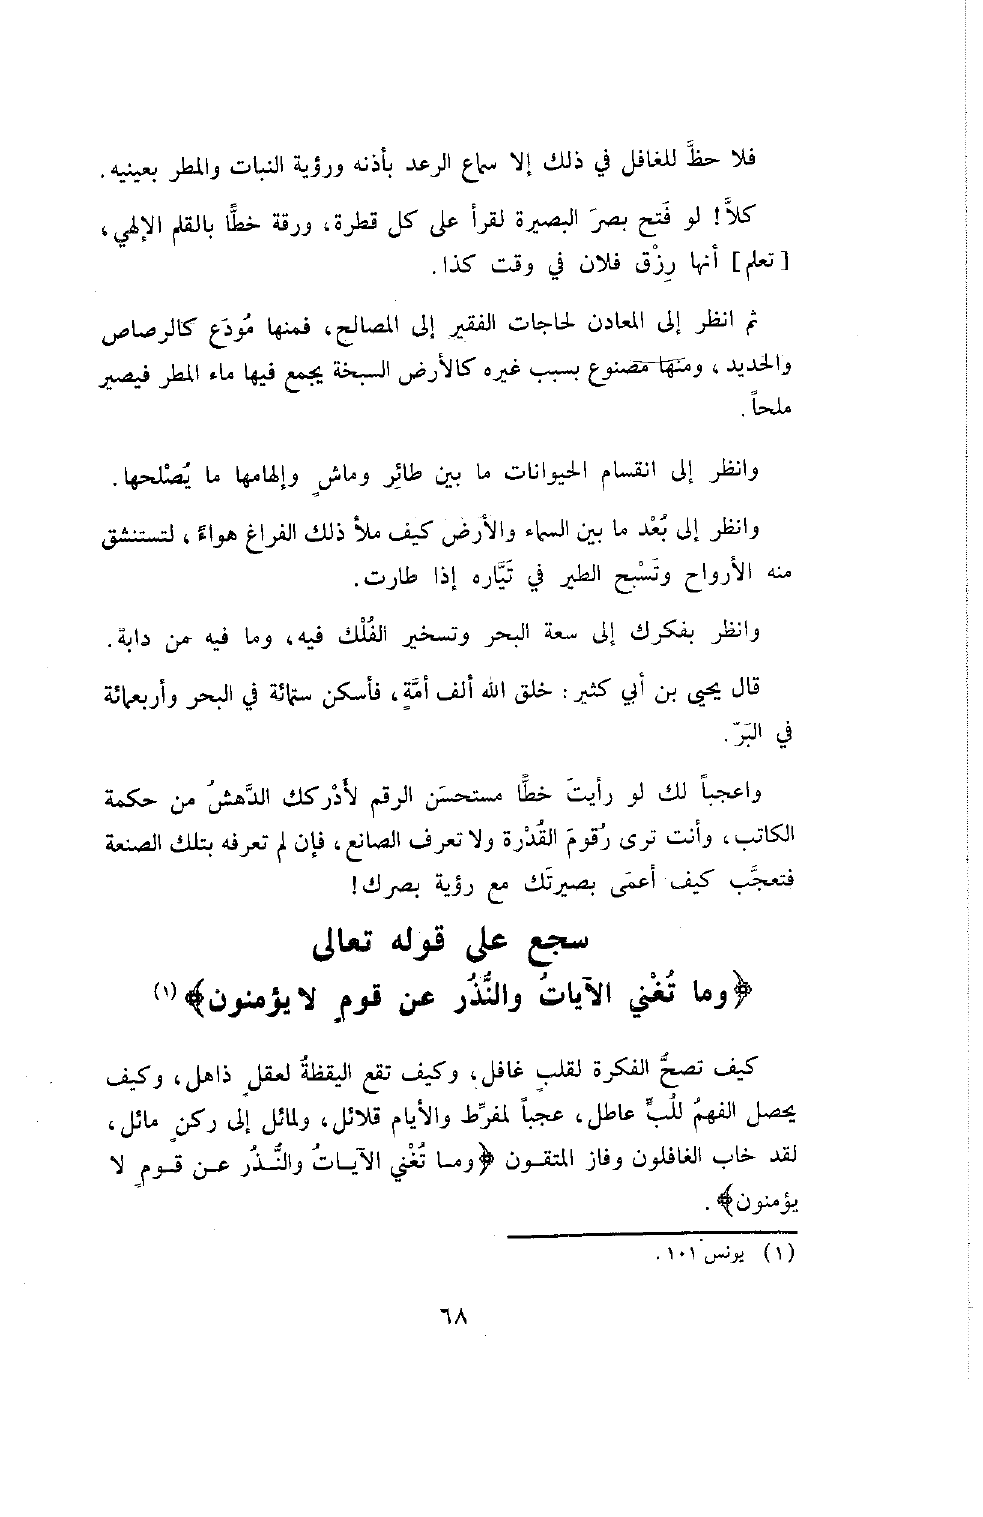 فلا حظَّ للغافل في ذلك إلا سماع الرعد بأذنه ورؤية النبات والمطر بعينيه.
كلاَّ! لو فَتح بصرَ البصيرة لقرأ على كل قطرة، ورقة خطًّا بالقلم الإلهي،
[تعلم] أنها رِزْق فلان في وقت كذا.
ثم انظر إلى المعادن لحاجات الفقير إلى المصالح، فمنها مُودَع كالرصاص
والحديد، ومنها مصنوع بسبب غيره كالأرض السبخة يجمع فيها ماء المطر فيصير
ملحاً.
وانظر إلى انقسام الحيوانات ما بين طائِر وماشٍ وإلهامها ما يُصْلحها.
وانظر إلى بُعْد ما بين السماء والأرض كيف ملأ ذلك الفراغ هواءً، لتستنشق
منه الأرواح وتَسْبح الطير في تَيَّاره إذا طارت.
وانظر بفكرك إلى سعة البحر وتسخير الفُلْك فيه، وما فيه من دابة.
قال يحيى بن أبي كثير: خلق الله ألف أمَّةٍ، فأسكن ستمائة في البحر وأربعمائة
في البَرّ.
واعجباً لك لو رأيتَ خطًّا مستحسَن الرقم لأَدْركك الدَّهشُ من حكمة
الكاتب، وأنت ترى رُقومَ القُدْرة ولا تعرف الصانع، فإن لم تعرفه بتلك الصنعة
فتعجَّب كيف أعمَى بصيرتَك مع رؤية بصرك!
سجع على قوله تعالى
﴿وما تُغْني الآياتُ والنُّذُر عن قومٍ لا يؤمنون﴾(١)
كيف تصحُّ الفكرة لقلبٍ غافل، وكيف تقع اليقظةُ لعقلٍ ذاهل، وكيف
يحصل الفهمُ للُبٍّ عاطل، عجباً لمفرِّط والأيام قلائل، ولمائل إلى ركنٍ مائل،
لقد خاب الغافلون وفاز المتقون ﴿وما تُغْني الآياتُ والنُّذُر عن قومٍ لا
يؤمنون﴾.
(١) يونس ١٠١.
٦٨